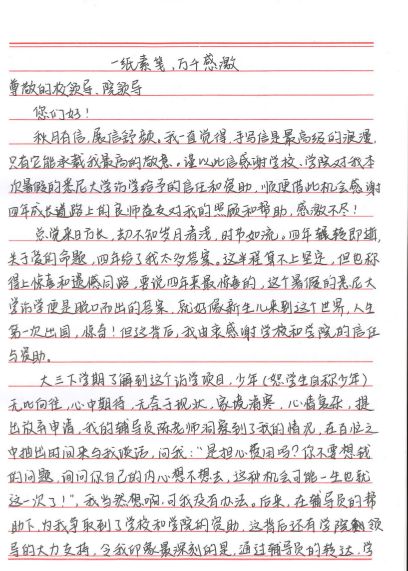 一纸素笔,万千感激
尊敬的校领导、院领导
您们好!
秋月有信,展信舒颜。我一直觉得,手写信是最高级的浪漫,
只有它能承载我最高的敬意。谨以此信感谢学校、学院对我本
次暑假的悉尼大学访学给予的信任和资助,顺便借此机会感谢
四年成长道路上的良师益友对我的照顾和帮助,感激不尽!
总觉来日方长,却不知岁月清浅,时节如流。四年辗转即逝,
关于爱的命题,四年给了我太多答案。这半程算不上坚卒,但也称
得上惊喜和遗憾同路,要说四年来最惊喜的,这个暑假的悉尼大
学访学便是脱口而出的答案,就好像新生儿来到这个世界,人生
第一次出国,惊奇!但这背后,我由衷感谢学校和学院的信任
与资助。
大三下学期了解到这个访学项目,少年(恕学生自称少年)
无比向往,心中期待,无奈于现状,家境清寒,心情复杂,提
出放弃申请,我的辅导员陈老师洞察到了我的情况,在百忙之
中抽出时间来与我谈话,问我:“是担心费用吗?你不要想钱
的问题,问问你自己的内心想不想去,这种机会可能一生也就
这一次了!”,我当然想啊,可我没有办法。后来,在辅导员的帮
助下,为我争取到了学校和学院的资助,这背后还有学院领
导的大力支持,令我印象最深刻的是,通过辅导员的转达,学